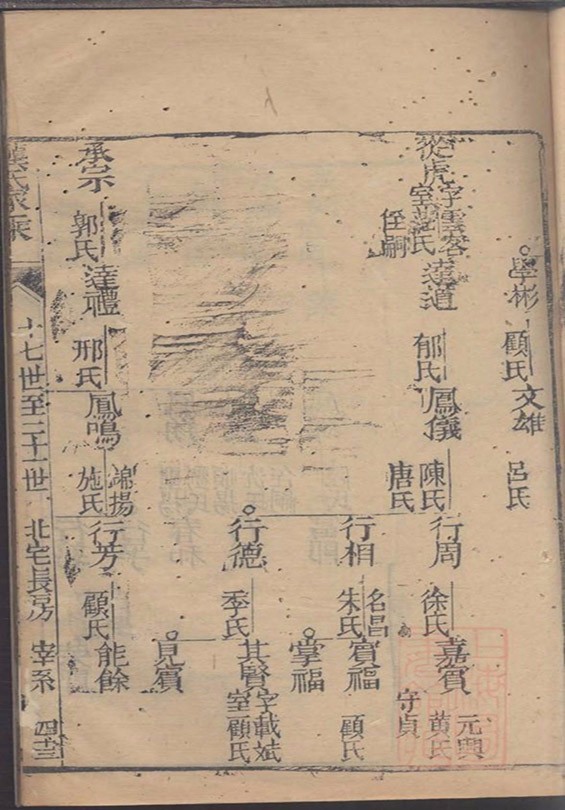 學彬
顧氏
文雄
呂氏
從虎
字雲客
達道
侄嗣
郁氏
鳳儀
陳氏
唐氏
行周
徐氏
嘉賓
元興
黃氏
守貞
行相
名昌
朱氏
賓福
顧氏
掌福
行德
季氏
其賢
字載斌
室顧氏
見賓
承宗
郭氏
達禮
邢氏
鳳鳴
錦揚
施氏
行芳
顧氏
能餘
十七世至二十一世
北宅長房
宰系